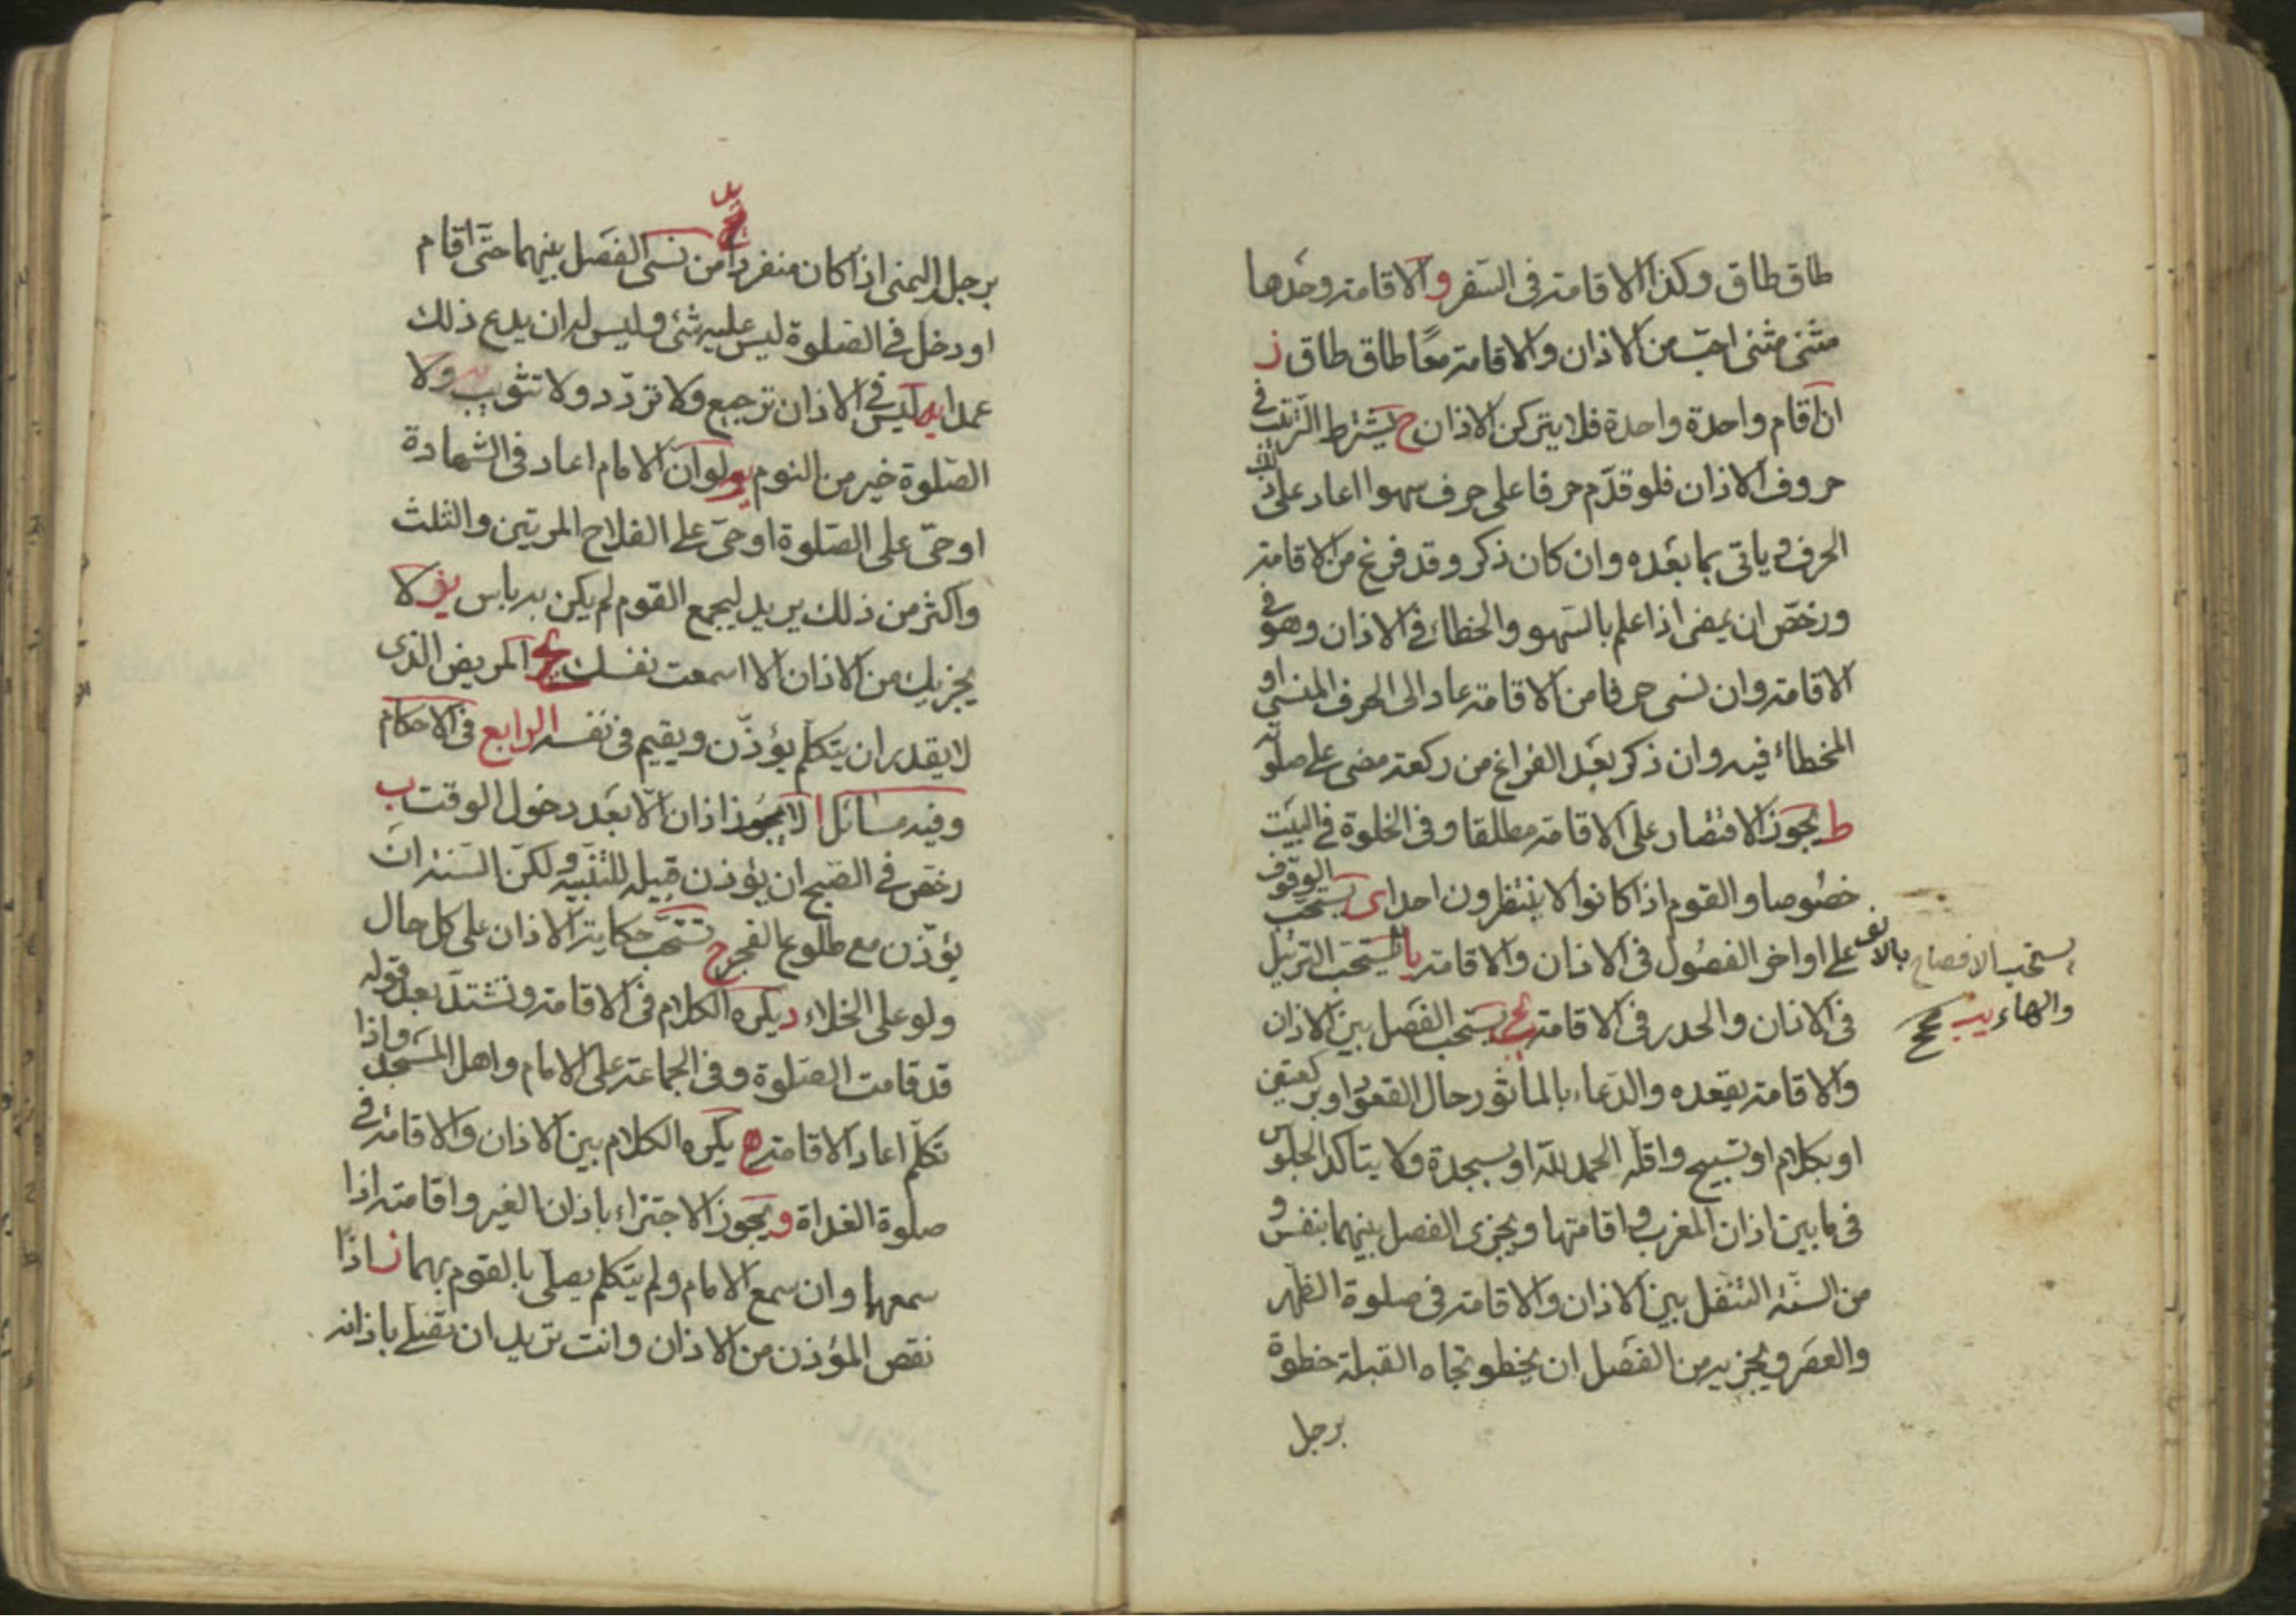 طاق طاق وكذا الاقامة فى السّفر و الاقامة وحدها
مثنى مثنى احبّ من الاذان والاقامة معًا طاق طاق ز
ان اقام واحدة واحدة فلا يتركن الاذان ح يشترط الترتيب فى
حروف الاذان فلو قدّم حرفا على حرف سهوا اعاد على ذلك
الحرف و ياتى بما بعده وان كان ذكر وقد فرغ من الاقامة
ورخّص ان يمضى اذا علم بالسّهو والخطاء فى الاذان وهو فى
الاقامة وان نسى حرفا من الاقامة عاد الى الحرف المنسى او
المخطاء فيه وان ذكر بعد الفراغ من ركعة مضى على صلوته
ط يجوز الاقتصار على الاقامة مطلقا وفى الخلوة فى البيت
خصُوصا والقوم اذا كانوا لا ينتظرون احدا ى يستحب الوقوف
على اواخر الفصُول فى الاذان والاقامة يا يستحب الترتيل
يستحب الافصاح بالالف
والهاء يب صح
فى الاذان والحدر فى الاقامة يج يستحب الفصَل بين الاذان
والاقامة بقعده والدعاء بالماثور حال القعود او بركعتين
او بكلام او تسبيح واقله الحمد لله او بسجدة ولا يتاكد الجلوس
فى ما بين اذان المغرب و اقامتها ويجزى الفصل بينهما بنفس و
من السنّة التنفل بين الاذان والاقامة فى صلوة الظهر
والعصَر ويجزيه من الفصَل ان يخطو تجاه القبلة خطوة
برجل
برجله اليمنى اذا كان منفردا يد من نسى الفصَل بينهما حتّى اقام
او دخل فى الصَلوة ليس عليه شئ وليس له ان يدع ذلك
عمدا يه ليس فى الاذان ترجيع ولا تردّد ولا تثويب ولا
الصَلوة خير من النوم يو لو انّ الامام اعاد فى الشهادة
او حىّ على الصَلوة او حىّ على الفلاح المرتين والثلث
واكثر من ذلك يريد ليجمع القوم لم يكن به باس يز لا
يجزيك من الاذان الا اسمعت نفسك يح المريض الذى
لا يقدر ان يتكلم يؤذّن ويقيم فى نفسه الرابع فى الاحكام
وفيه مسائل ا لا يجوز اذان الّا بعَد دخول الوقت ب
رخص فى الصبح ان يؤذن قبيله للتنبيه ولكن السَنة ان
يؤذّن مع طلوع الفجر ج تستحب حكاية الاذان على كل حال
ولو على الخلاء د يكره الكلام فى الاقامة وتشتد بعد قوله
قد قامت الصَلوة وفى الجماعة على الامام واهل المسَجد واذا
تكلّم اعاد الاقامة ه يكره الكلام بين الاذان والاقامة فى
صلوة الغداة و يجوز الاجتزاء باذان الغير واقامته اذا
سمعها وان سمع الامام ولم يتكلم يصلى بالقوم بهما ز اذا
نقص المؤذن من الاذان وانت تريد ان تصَلى باذانه